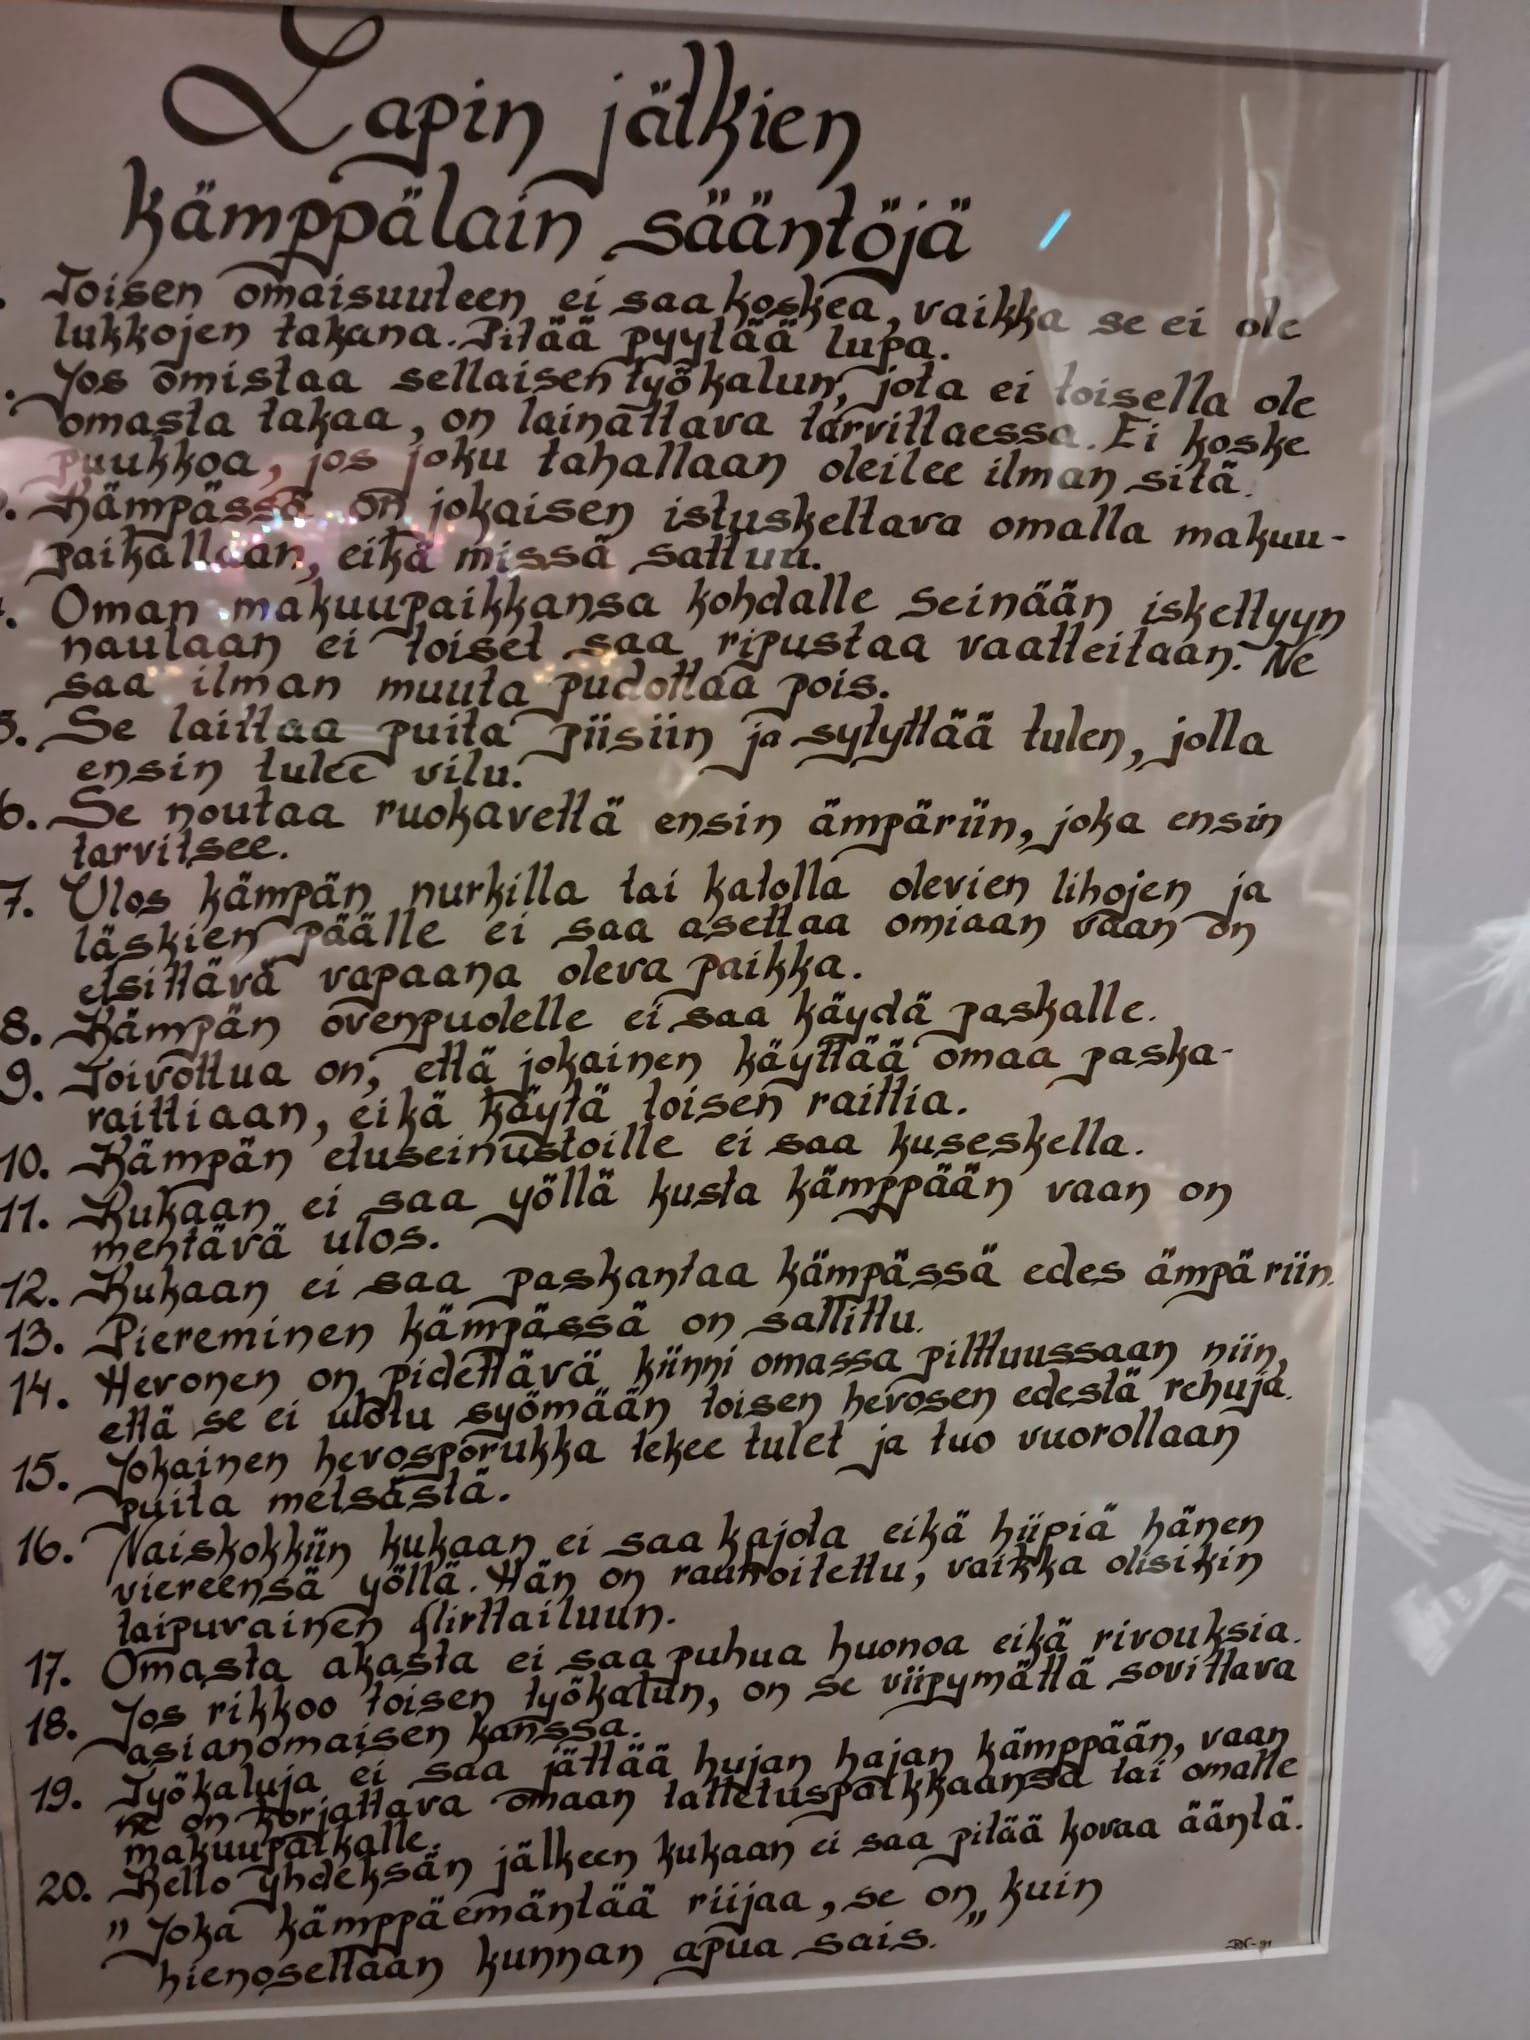 Lapin jätkien
kämppälain sääntöjä
. Toisen omaisuuteen ei saa koskea, vaikka se ei ole
lukkojen takana. Pitää pyytää lupa.
. Jos omistaa sellaisen työkalun, jota ei toisella ole
omasta takaa, on lainattava tarvittaessa. Ei koske
puukkoa, jos joku tahallaan oleilee ilman sitä.
. Kämpässä on jokaisen istuskeltava omalla makuu-
paikallaan, eikä missä sattuu.
. Oman makuupaikkansa kohdalle seinään iskettyyn
naulaan ei toiset saa ripustaa vaatteitaan. Ne
saa ilman muuta pudottaa pois.
5. Se laittaa puita piisiin ja sytyttää tulen, jolla
ensin tulee vilu.
6. Se noutaa ruokavettä ensin ämpäriin, joka ensin
tarvitsee.
7. Ulos kämpän nurkilla tai katolla olevien lihojen ja
läskien päälle ei saa asettaa omiaan vaan on
etsittävä vapaana oleva paikka.
8. Kämpän ovenpuolelle ei saa käydä paskalle.
9. Toivottua on, että jokainen käyttää omaa paska-
raittiaan, eikä käytä toisen raittia.
10. Kämpän etuseinustoille ei saa kuseskella.
11. Kukaan ei saa yöllä kusta kämppään vaan on
mentävä ulos.
12. Kukaan ei saa paskantaa kämpässä edes ämpäriin.
13. Piereminen kämpässä on sallittu.
14. Hevonen on pidettävä kiinni omassa pilttuussaan niin,
että se ei ulotu syömään toisen hevosen edestä rehuja.
15. Jokainen hevosporukka tekee tulet ja tuo vuorollaan
puita metsästä.
16. Naiskokkiin kukaan ei saa kajota eikä hiipiä hänen
viereensä yöllä. Hän on rauhoitettu, vaikka olisikin
taipuvainen flirttailuun.
17. Omasta akasta ei saa puhua huonoa eikä rivouksia.
18. Jos rikkoo toisen työkalun, on se viipymättä sovittava
asianomaisen kanssa.
19. Työkaluja ei saa jättää hujan hajan kämppään, vaan
ne on korjattava omaan talletuspaikkaansa tai omalle
makuupaikalle.
20. Kello yhdeksän jälkeen kukaan ei saa pitää kovaa ääntä.
"Joka kämppäemäntää riijaa, se on kuin
hienoseltaan kunnan apua sais."